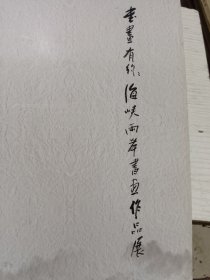 書畫有約：海峽兩岸書畫作品展